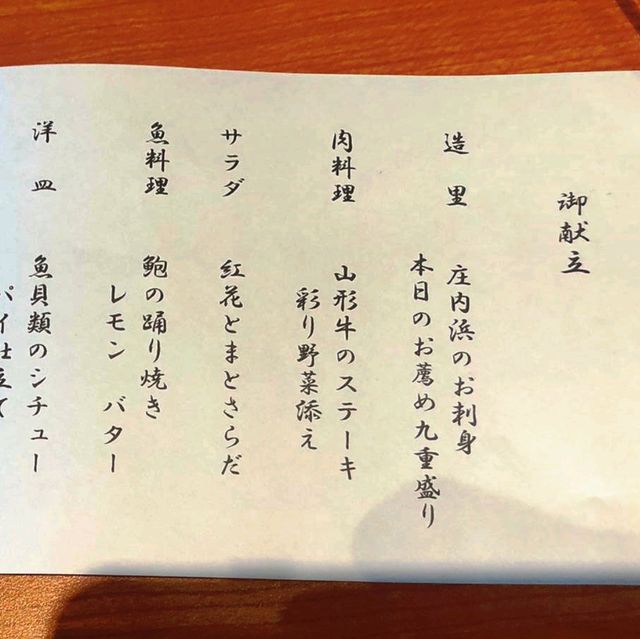 御献立
造里 庄内浜のお刺身
本日のお薦め九重盛り
肉料理 山形牛のステーキ
彩り野菜添え
サラダ 紅花とまとさらだ
魚料理 鮑の踊り焼き
レモン バター
洋皿 魚貝類のシチュー
パイ仕立て